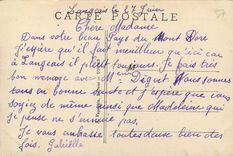 Langeais le 27 Juin
CARTE POSTALE
Chère Madame
Dans votre beau Pays du Mont Dore
J'espère qu'il fait meilleur qu'ici car
à Langeais il pleut toujours. Je fais très
bon menage avec Mme Déguet Nous sommes
tous en bonne Santé et j'espère que vous
soyiez de même ainsi que Madeleine qui
je pense ne s'ennuie pas.
Je vous embrasse toutes deux bien des
fois. Gabrielle